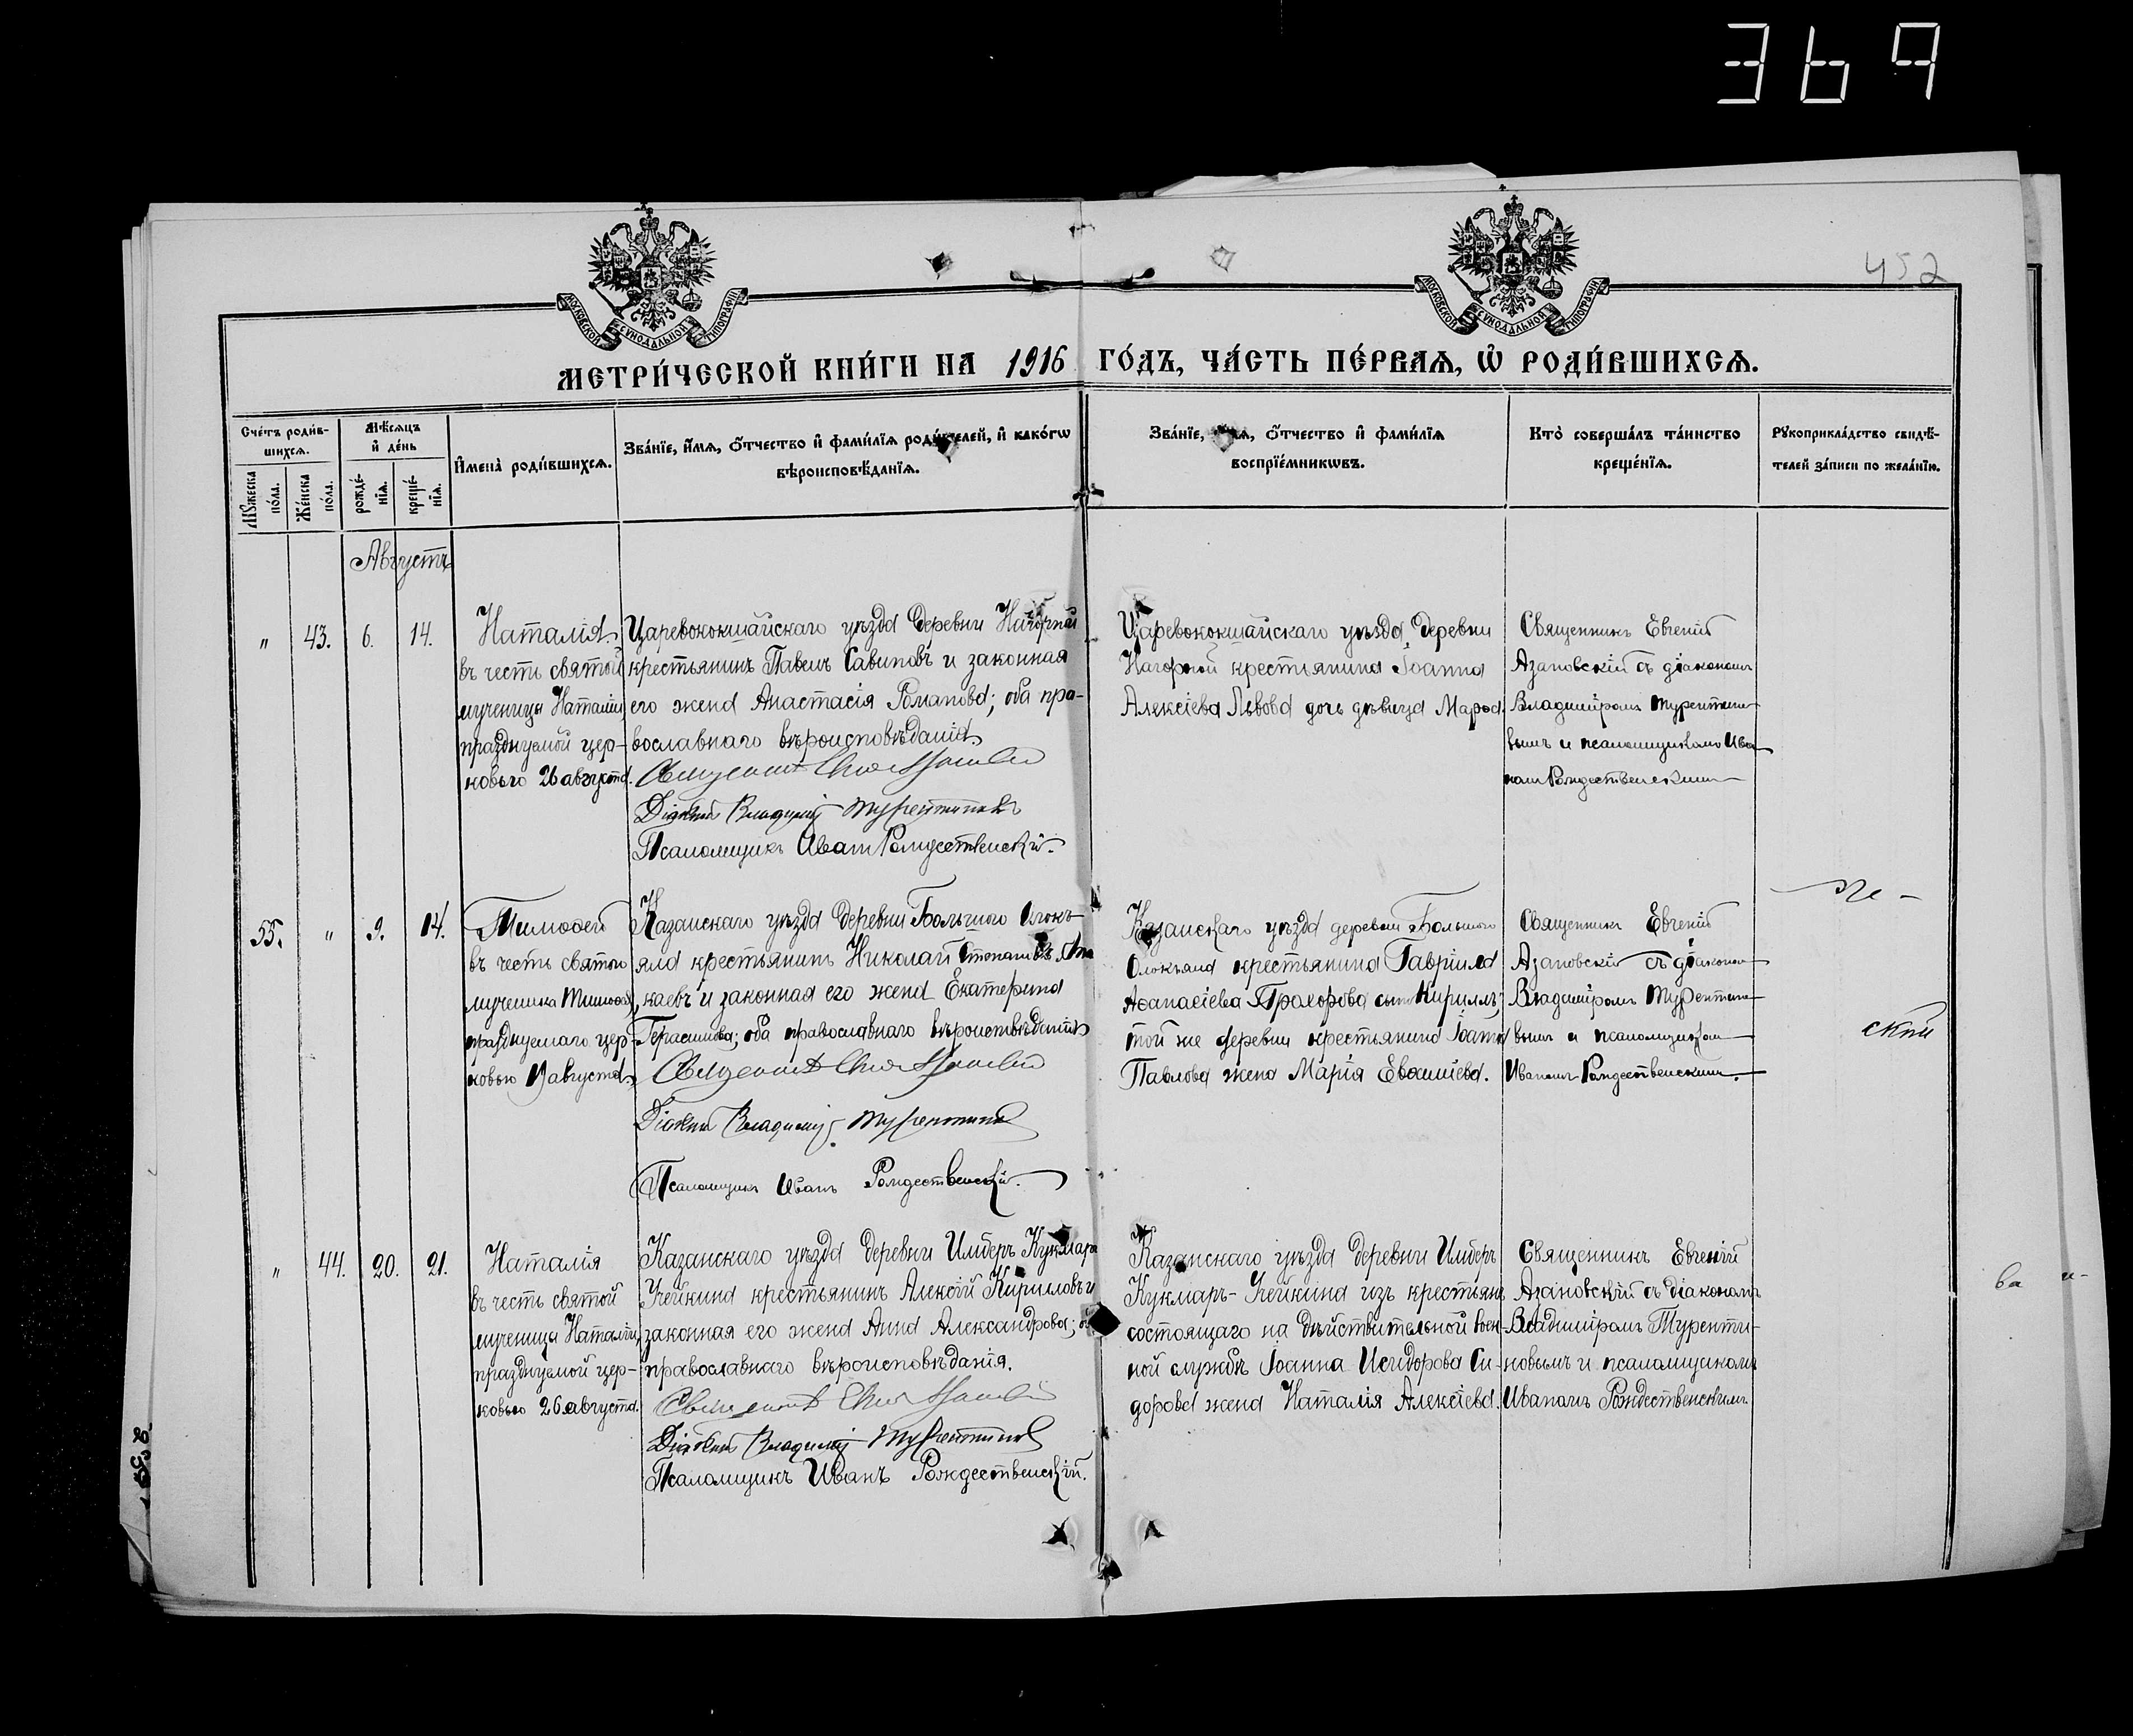 369
452
МОСКОВСКОЙ СѴНОДАЛЬНОЙ ТИПОГРАФІИ
МОСКОВСКОЙ СѴНОДАЛЬНОЙ ТИПОГРАФІИ
МЕТРИ́ЧЕСКОЙ КНИ́ГИ НА 1916 ГО́ДЪ, ЧА́СТЬ ПЕ́РВАѦ, Ѽ РОДИ́ВШИХСѦ.
Сче́тъ роди́в-
шихсѧ.
Мꙋ́жеска по́ла.
Же́нска по́ла.
Мѣ́сѧцъ
и҆ де́нь
рожде́-
нїѧ.
креще́-
нїѧ.
И҆мена̀ роди́вшихсѧ.
Зва́нїе, и҆́мѧ, ѻ҆́тчество и҆ фами́лїѧ роди́телей, и҆ како́гѡ
вѣроисповѣ́данїѧ.
Зва́нїе, и҆́мѧ, ѻ҆́тчество и҆ фами́лїѧ
воспрїе́мникѡвъ.
Кто̀ соверша́лъ та́инство
креще́нїѧ.
Рꙋкоприкла́дство свидѣ́-
телей за́писи по жела́нїю.
Августъ
" 43. 6. 14.
Наталія
въ честь святой
мученицы Наталіи,
празднуемой цер-
ковью 26 августа.
Царевококшайскаго уѣзда деревни Нагорной
крестьянинъ Павелъ Савиновъ и законная
его жена Анастасія Романова; оба пра-
вославнаго вѣроисповѣданія.
Священникъ
Діаконъ Владиміръ Турентиновъ
Псаломщикъ Иванъ Рождественскій.
Царевококшайскаго уѣзда деревни
Нагорной крестьянина Іоанна
Алексіева Львова дочь дѣвица
Священникъ Евгеній
Азановскій съ діакономъ
Владиміромъ Турентино-
вымъ и псаломщикомъ Ива-
номъ Рождественскимъ
55. " 9. 14.
Тимоѳей
въ честь святого
мученика Тимоѳея,
празднуемаго цер-
ковью 19 августа.
Казанскаго уѣзда деревни Большого Олокъ-
яла крестьянинъ Николай Степановъ
каевъ и законная его жена Екатерина
Герасимова; оба православнаго вѣроисповѣданія
Священникъ
Діаконъ Владиміръ Турентиновъ
Псаломщикъ Иванъ Рождественскій.
Казанскаго уѣзда деревни Большого
Олокъяла крестьянина Гавріила
Аѳанасіева Прохорова сынъ Кириллъ;
той же деревни крестьянина Іоанна
Павлова жена Марія Евѳиміева.
Священникъ Евгеній
Азановскій съ діаконом
Владиміромъ Турентино-
вымъ и псаломщиком
Иваномъ Рождественскимъ.
скій
" 44. 20. 21.
Наталія
въ честь святой
мученицы Наталіи,
празднуемой цер-
ковью 26 августа.
Казанскаго уѣзда деревни Имберъ Кукмаръ
Учейкина крестьянинъ Алексій Кирилловъ и
законная его жена Анна Александрова;
православнаго вѣроисповѣданія.
Священникъ
Діаконъ Владиміръ Турентиновъ
Псаломщикъ Иванъ Рождественскій.
Казанскаго уѣзда деревни Имберъ
Кукмаръ-Учейкина изъ крестьянъ
состоящаго на дѣйствительной воен-
ной службѣ Іоанна Исидорова Си-
дорова жена Наталія Алексіева.
Священникъ Евгеній
Азановскій съ діакономъ
Владиміромъ Туренти-
новымъ и псаломщикомъ
Иваномъ Рождественскимъ
ва и-